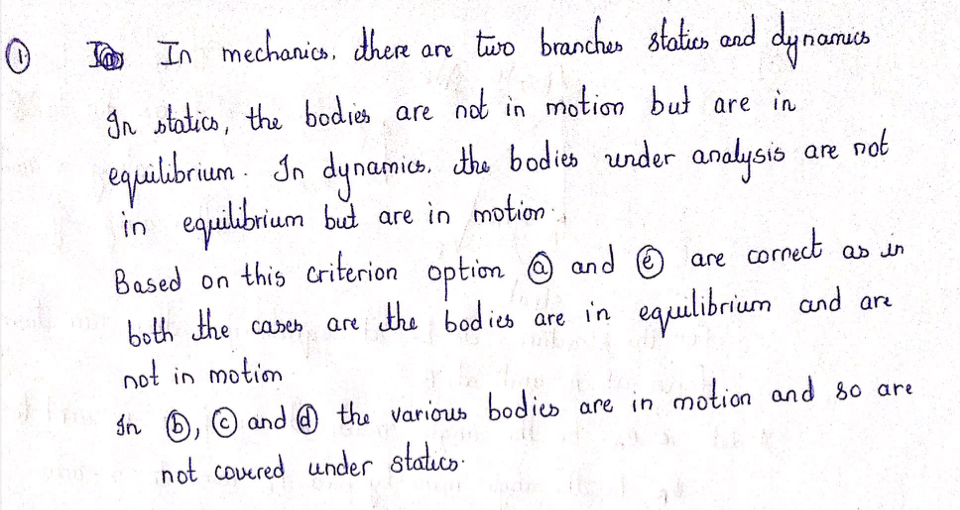 ① In mechanics, there are two branches statics and dynamics
In statics, the bodies are not in motion but are in
equilibrium. In dynamics, the bodies under analysis are not
in equilibrium but are in motion.
Based on this criterion option ⓐ and ⓔ are correct as in
both the cases are the bodies are in equilibrium and are
not in motion
In ⓑ, ⓒ and ⓓ the various bodies are in motion and so are
not covered under statics.